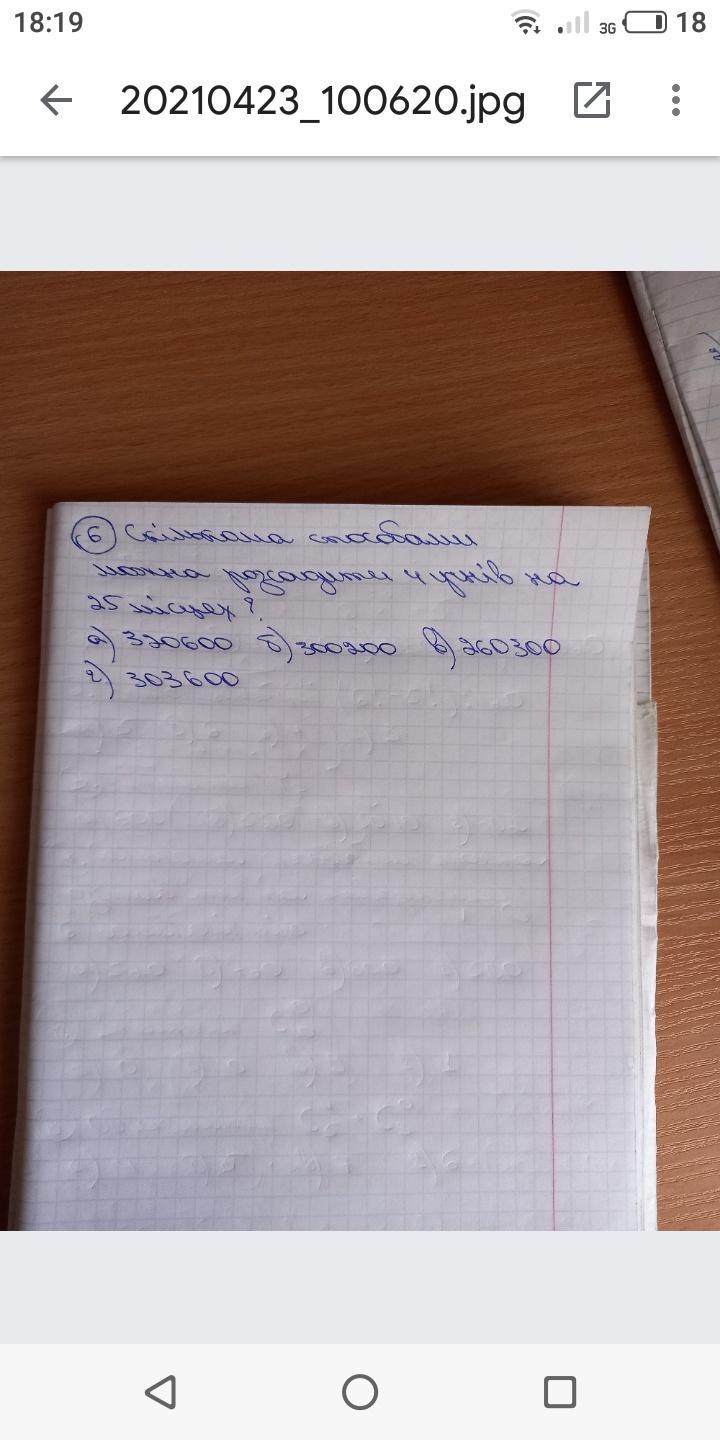 18:19
3G 18
20210423_100620.jpg
6 Скількома способами
можна розсадити 4 учнів на
25 місцях?
а) 320600 б) 300200 в) 260300
г) 303600